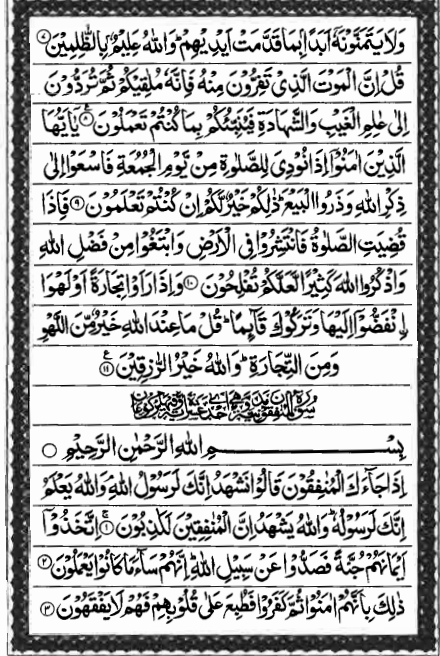 وَلَا يَتَمَنَّوْنَهٗۤ اَبَدًۢا بِمَا قَدَّمَتْ اَيْدِيْهِمْ ؕ وَاللّٰهُ عَلِيْمٌۢ بِالظّٰلِمِيْنَ ۷
قُلْ اِنَّ الْمَوْتَ الَّذِيْ تَفِرُّوْنَ مِنْهُ فَاِنَّهٗ مُلٰقِيْكُمْ ثُمَّ تُرَدُّوْنَ
اِلٰى عٰلِمِ الْغَيْبِ وَالشَّهَادَةِ فَيُنَبِّئُكُمْ بِمَا كُنْتُمْ تَعْمَلُوْنَ ۸ ع يٰۤاَيُّهَا
الَّذِيْنَ اٰمَنُوْۤا اِذَا نُوْدِيَ لِلصَّلٰوةِ مِنْ يَّوْمِ الْجُمُعَةِ فَاسْعَوْا اِلٰى
ذِكْرِ اللّٰهِ وَذَرُوا الْبَيْعَ ؕ ذٰلِكُمْ خَيْرٌ لَّكُمْ اِنْ كُنْتُمْ تَعْلَمُوْنَ ۹ فَاِذَا
قُضِيَتِ الصَّلٰوةُ فَانْتَشِرُوْا فِي الْاَرْضِ وَابْتَغُوْا مِنْ فَضْلِ اللّٰهِ
وَاذْكُرُوا اللّٰهَ كَثِيْرًا لَّعَلَّكُمْ تُفْلِحُوْنَ ۱۰ وَاِذَا رَاَوْا تِجَارَةً اَوْ لَهْوَا
ۨ انْفَضُّوْۤا اِلَيْهَا وَتَرَكُوْكَ قَآئِمًا ؕ قُلْ مَا عِنْدَ اللّٰهِ خَيْرٌ مِّنَ اللَّهْوِ
وَمِنَ التِّجَارَةِ ؕ وَاللّٰهُ خَيْرُ الرّٰزِقِيْنَ ۱۱ ع
سُوْرَةُ الْمُنٰفِقُوْنَ
بِسْمِ اللّٰهِ الرَّحْمٰنِ الرَّحِيْمِ
اِذَا جَآءَكَ الْمُنٰفِقُوْنَ قَالُوْا نَشْهَدُ اِنَّكَ لَرَسُوْلُ اللّٰهِ ۘ وَاللّٰهُ يَعْلَمُ
اِنَّكَ لَرَسُوْلُهٗ ؕ وَاللّٰهُ يَشْهَدُ اِنَّ الْمُنٰفِقِيْنَ لَكٰذِبُوْنَ ۱ ج اِتَّخَذُوْۤا
اَيْمَانَهُمْ جُنَّةً فَصَدُّوْا عَنْ سَبِيْلِ اللّٰهِ ؕ اِنَّهُمْ سَآءَ مَا كَانُوْا يَعْمَلُوْنَ ۲
ذٰلِكَ بِاَنَّهُمْ اٰمَنُوْا ثُمَّ كَفَرُوْا فَطُبِعَ عَلٰى قُلُوْبِهِمْ فَهُمْ لَا يَفْقَهُوْنَ ۳